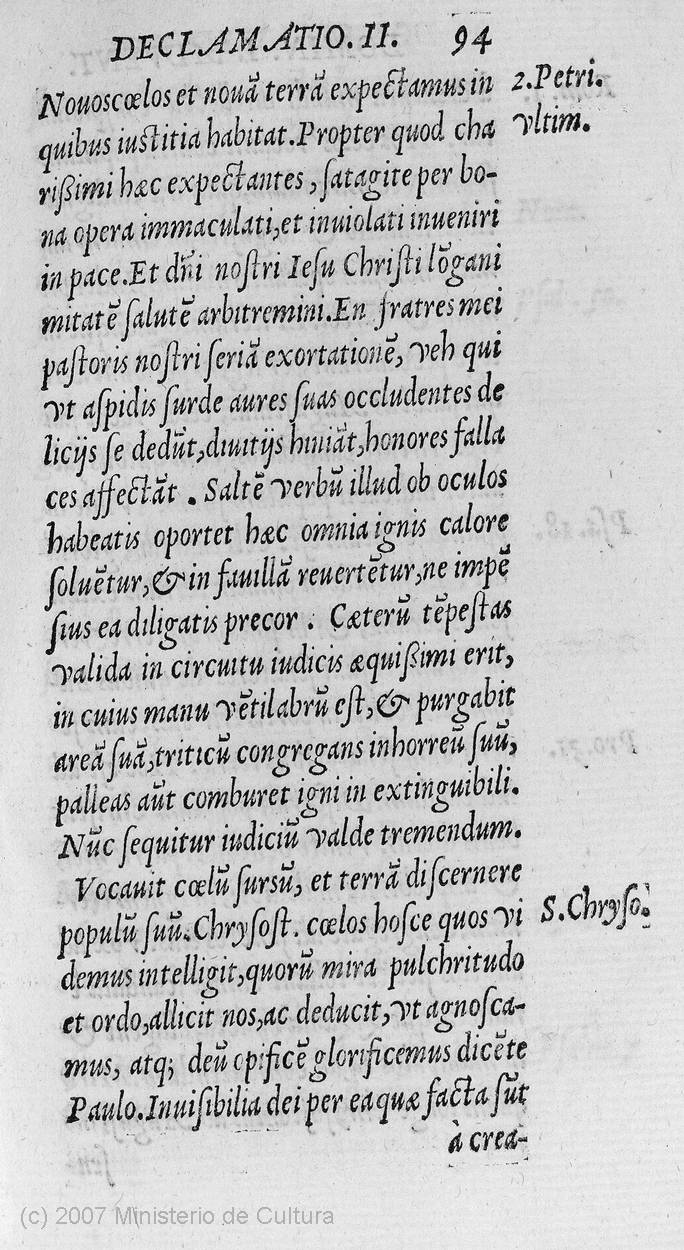 DECLAMATIO. II. 94
Nouoscœlos et nouā terrā expectamus in
2. Petri.
quibus iustitia habitat. Propter quod cha
vltim.
rißimi hæc expectantes, ſatagite per bo-
na opera immaculati, et inuiolati inueniri
in pace. Et dn̄i noſtri Ieſu Chriſti lōgani
mitatē ſalutē arbitremini. En fratres mei
paſtoris noſtri ſeriā exortationē, veh qui
vt aſpidis ſurde aures ſuas occludentes de
licijs ſe dedūt, diuitijs hiniāt, honores falla
ces affectāt. Saltē verbū illud ob oculos
habeatis oportet hæc omnia ignis calore
ſoluētur, & in fauillā reuertētur, ne impē
ſius ea diligatis precor. Cæterū tēpeſtas
valida in circuitu iudicis æquißimi erit,
in cuius manu vētilabrū eſt, & purgabit
areā ſuā, triticū congregans inhorreū ſuū,
palleas aūt comburet igni in extinguibili.
Nūc ſequitur iudiciū valde tremendum.
Vocauit cœlū ſurſū, et terrā diſcernere
populū ſuū. Chryſoſt. cœlos hoſce quos vi
S. Chryſo.
demus intelligit, quorū mira pulchritudo
et ordo, allicit nos, ac deducit, vt agnoſca-
mus, atq; deū opificē glorificemus dicēte
Paulo. Inuiſibilia dei per ea quæ facta ſūt
à crea-
(c) 2007 Ministerio de Cultura